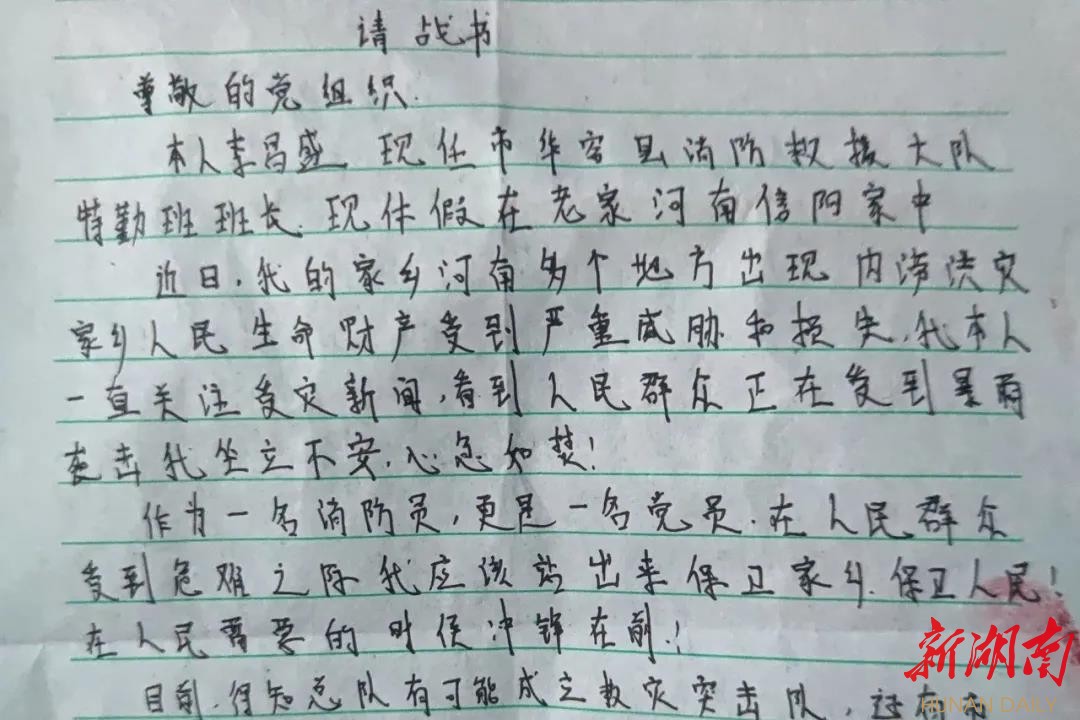 请战书
尊敬的党组织.
本人李昌盛 现任市华容县消防救援大队
特勤班班长.现休假在老家河南信阳家中
近日,我的家乡河南多个地方出现内涝洪灾
家乡人民生命财产受到严重威胁和损失,我本人
一直关注受灾新闻,看到人民群众正在受到暴雨
袭击我坐立不安,心急如焚!
作为一名消防员,更是一名党员.在人民群众
受到危难之际我应该站出来保卫家乡.保卫人民!
在人民需要的时候冲锋在前!
目前,得知总队有可能成立救灾突击队,
新湖南
HUNAN DAILY